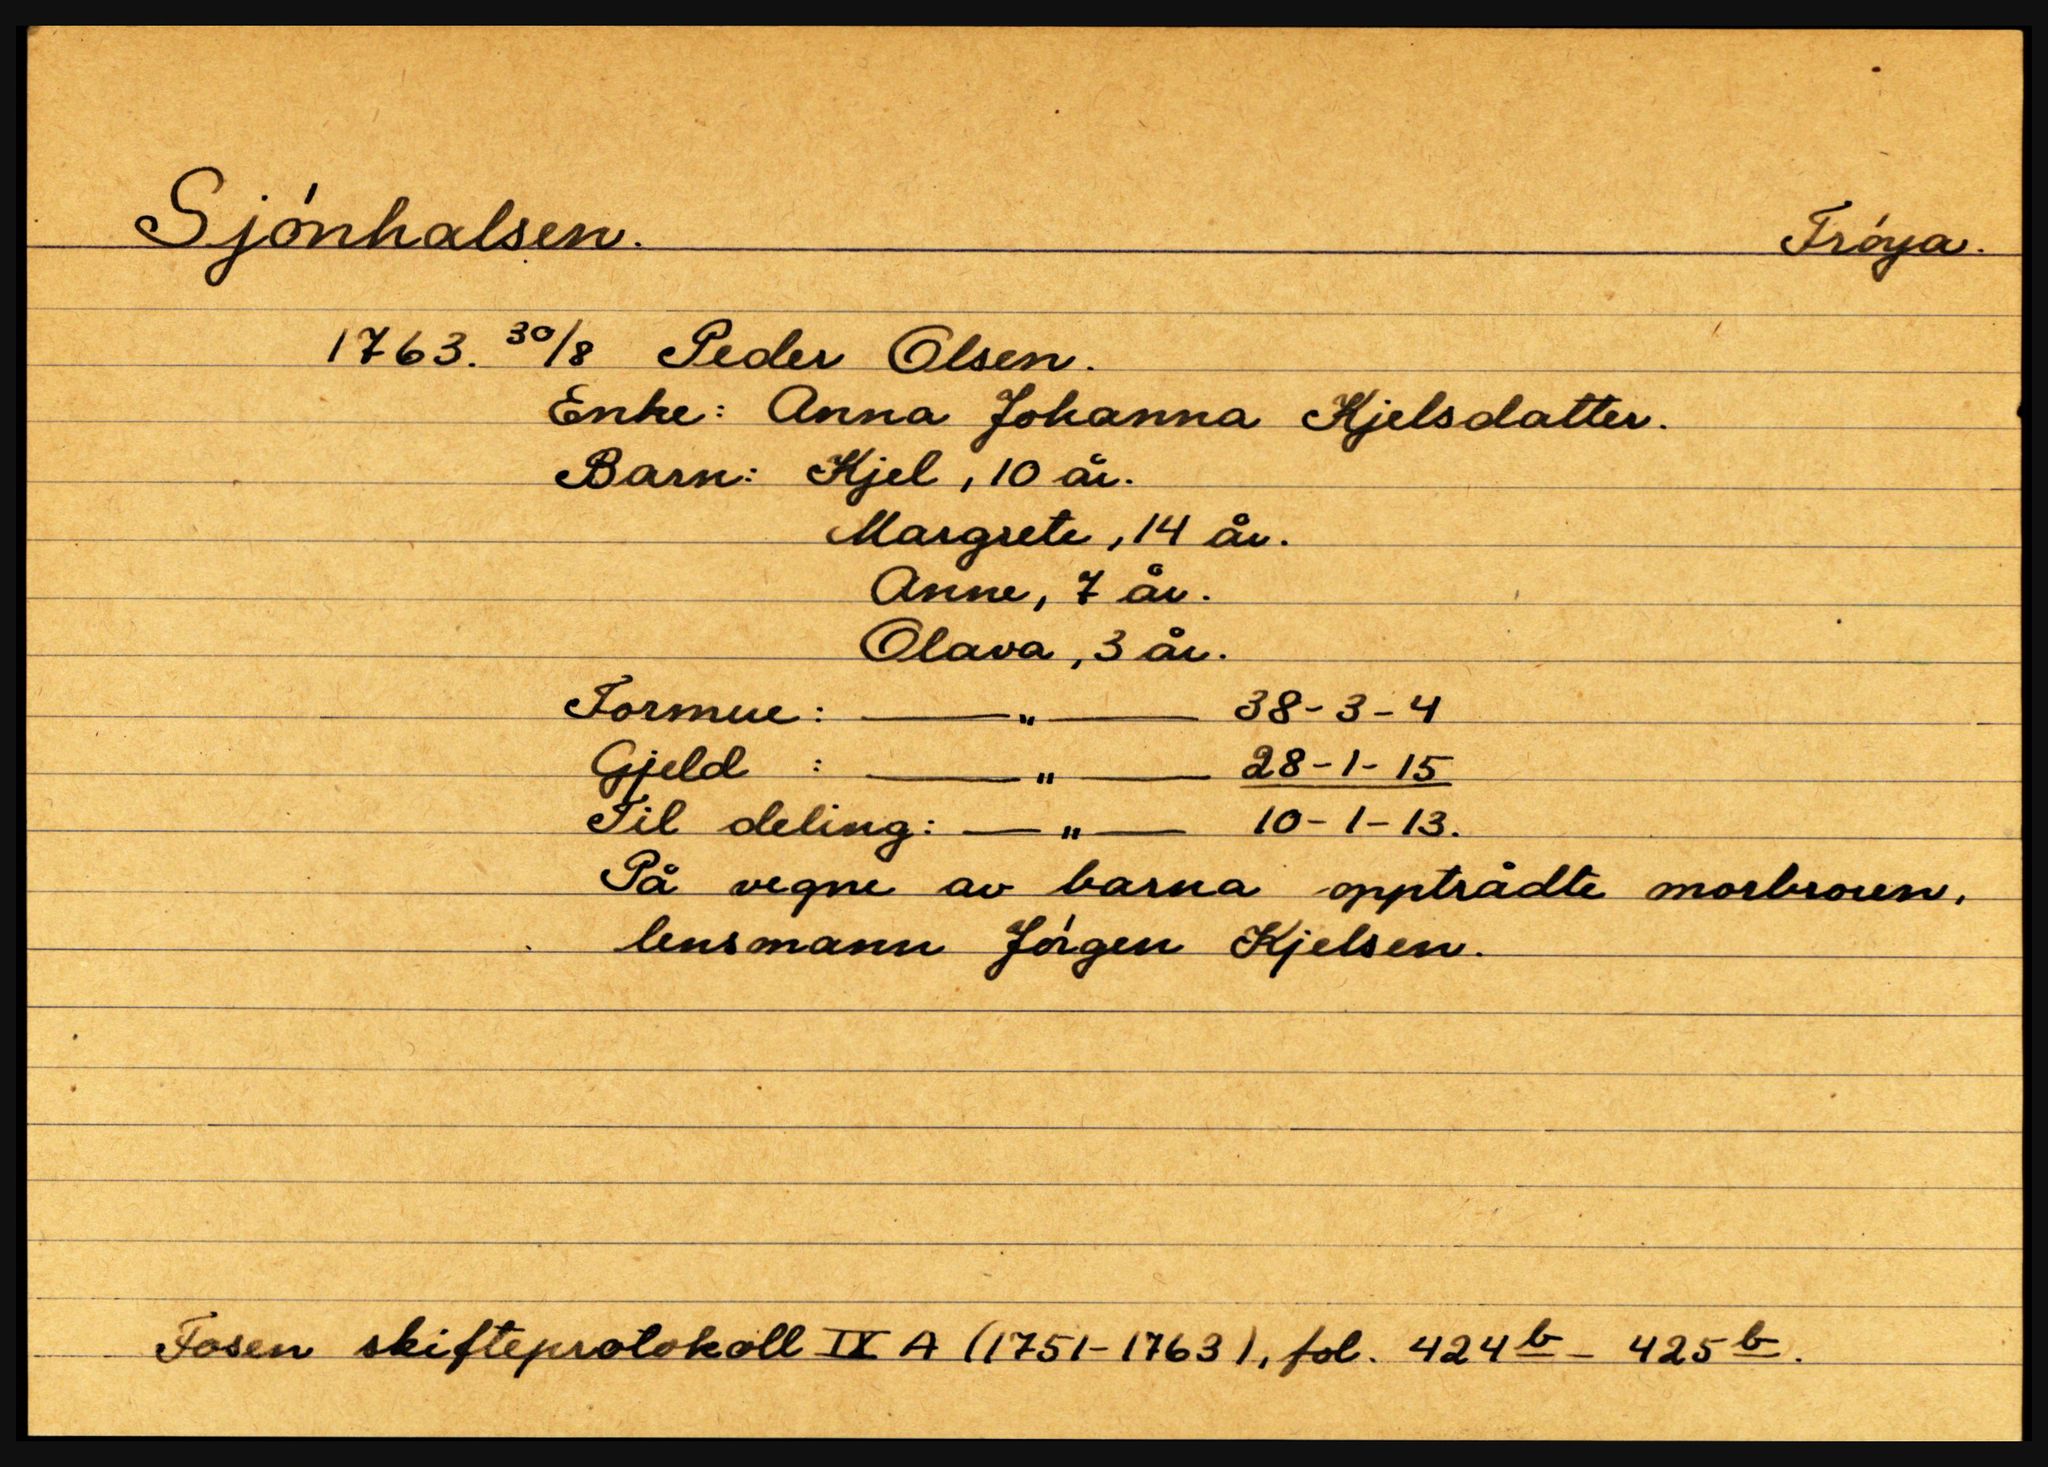 Sjónhalsen. Fróya.
1763. 30/8 Peder Olsen.
Enke: Anna Johanna Kjelsdatter.
Barn: Kjel, 10 år.
Margrete, 14 år.
Anne, 7 år.
Olava, 3 år.
Formue: —„— 38-3-4
Gjeld : —„— 28-1-15
Til deling: —„— 10-1-13.
På vegne av barna opptrådte morbroren,
lensmann Jórgen Kjelsen.
Fosen skifteprotokoll IX A (1751-1763), fol. 424b - 425b.